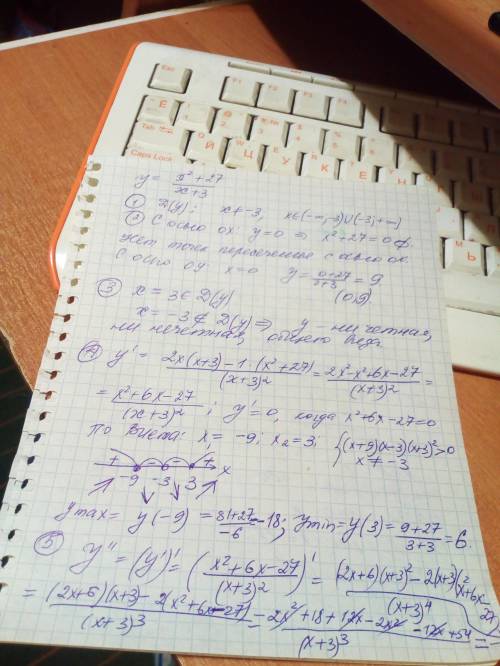 Esc F1 F2 F3 F4
Ё
Tab Й Ц У К Е
Caps Lock
Ь
y = (x² + 27)/(x + 3)
① D(y): x ≠ -3, x∈(-∞; -3)∪(-3; +∞)
② С осью ox: y=0 ⇒ x²+27=0 ∅.
Нет точек пересечения с осью ox.
С осью oy: x=0 y = (0+27)/(0+3) = 9
(0;9)
③ x = 3 ∈ D(y)
x = -3 ∉ D(y) ⇒ y - ни четная,
ни нечетная, общего вида
④ y' = (2x(x+3) - 1·(x²+27))/(x+3)² = (2x²-x²+6x-27)/(x+3)² =
= (x²+6x-27)/(x+3)² ; y'=0, когда x²+6x-27=0
По Виета: x₁ = -9; x₂ = 3; {(x+9)(x-3)(x+3)²>0
x ≠ -3
+ - - + x
-9 -3 3
↗ ↓ ↓ ↗
y max = y(-9) = (81+27)/-6 = -18; y min = y(3) = (9+27)/(3+3) = 6.
⑤ y'' = (y')' = ((x²+6x-27)/(x+3)²)' = ((2x+6)(x+3)² - 2(x+3)(x²+6x-27))/(x+3)⁴ =
= ((2x+6)(x+3) - 2(x²+6x-27))/(x+3)³ = (2x²+18+12x-2x²-12x+54)/(x+3)³ =